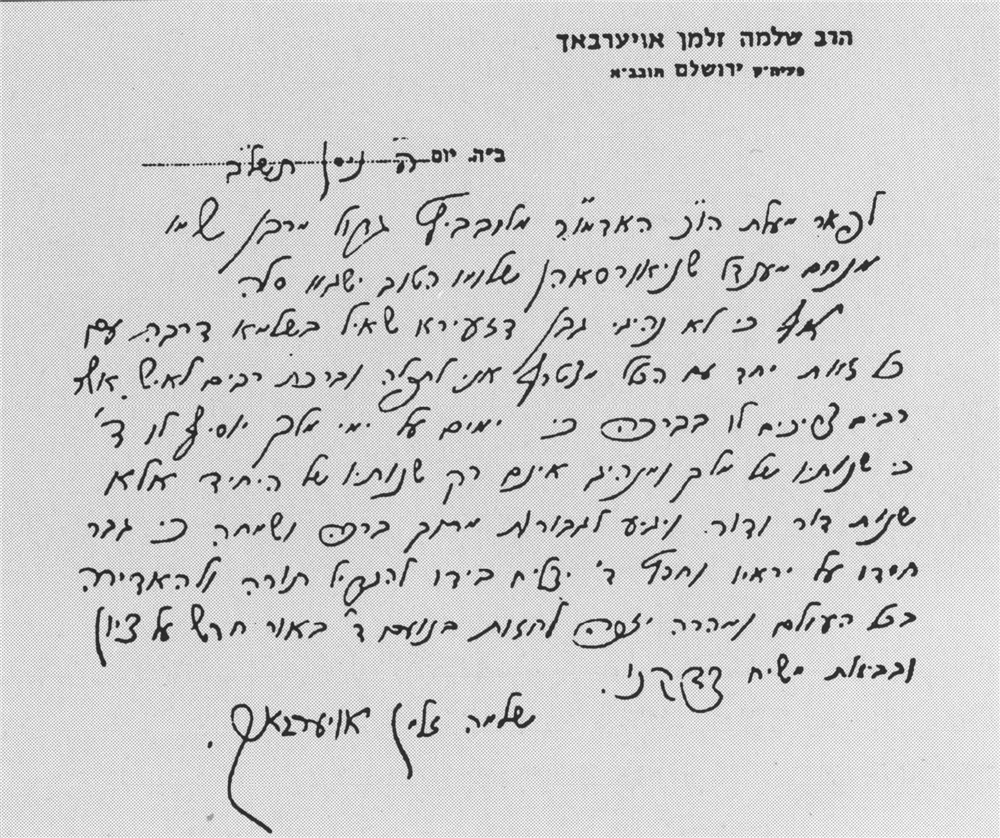 הרב שלמה זלמן אויערבאך
פעיה״ק ירושלם תובב״א
ב״ה. יום ה' ניסן תשל״ב
לפאר מעלת הו״כ האדמו״ר מלובביץ גדול מרבן שמו
מנחם מענדל שניאורסאהן שלומו הטוב ישגיו סלה
אף כי לא נהיגי גבן דזעירא שאיל בשלמא דרבה, עם
כל זאת יחד עם הכלל מצטרף אני לתהלה וברכת רבים לאיש אשר
רבים צריכים לו בברכה כי ימים על ימי מלך יוסיף לו ד'
כי שנותיו של מלך ומנהיג אינם רק שנותיו של היחיד אלא
שנות דור ודור. ויגיע לגבורות מתוך ברכה ושמחה כי גבר
חסדו על יראיו וחפץ ד' יצליח בידו להגדיל תורה ולהאדירה
בכל העולם ומהרה יזכה לחזות בנועם ד' באור חדש על ציון
ובביאת משיח צדקנו.
שלמה זלמן אויערבאך.